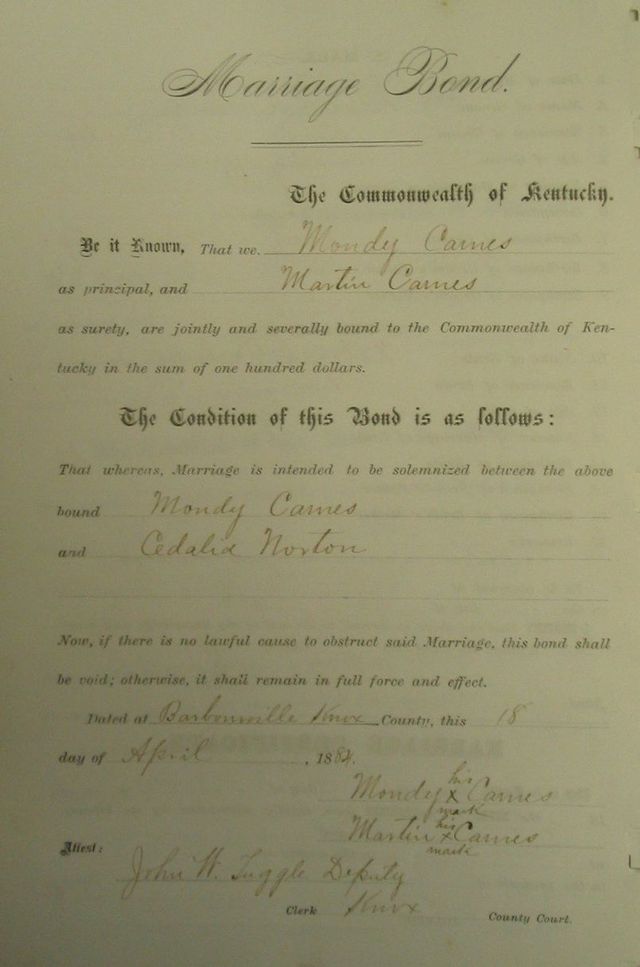 Marriage Bond.
The Commonwealth of Kentucky.
Be it Known, That we. Mondy Carnes
as principal, and Martin Carnes
as surety, are jointly and severally bound to the Commonwealth of Ken-
tucky in the sum of one hundred dollars.
The Condition of this Bond is as follows:
That whereas, Marriage is intended to be solemnized between the above
bound Mondy Carnes
and Cedalia Norton
Now, if there is no lawful cause to obstruct said Marriage, this bond shall
be void; otherwise, it shall remain in full force and effect.
Dated at Barbourville Knox County, this 18
day of April, 1884.
his
Mondy x Carnes
mark
his
Martin x Carnes
mark
Attest:
John W. Tuggle Deputy
Clerk Knox County Court.